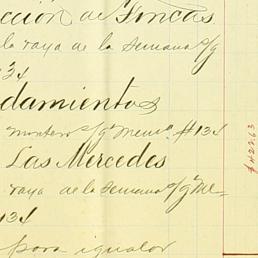 cción de Fincas
la raya de la semana s/g
13 1
damientos
montero s/g mem
Las Mercedes
raya de la semana s/g
13 1
para igualar
$422.63